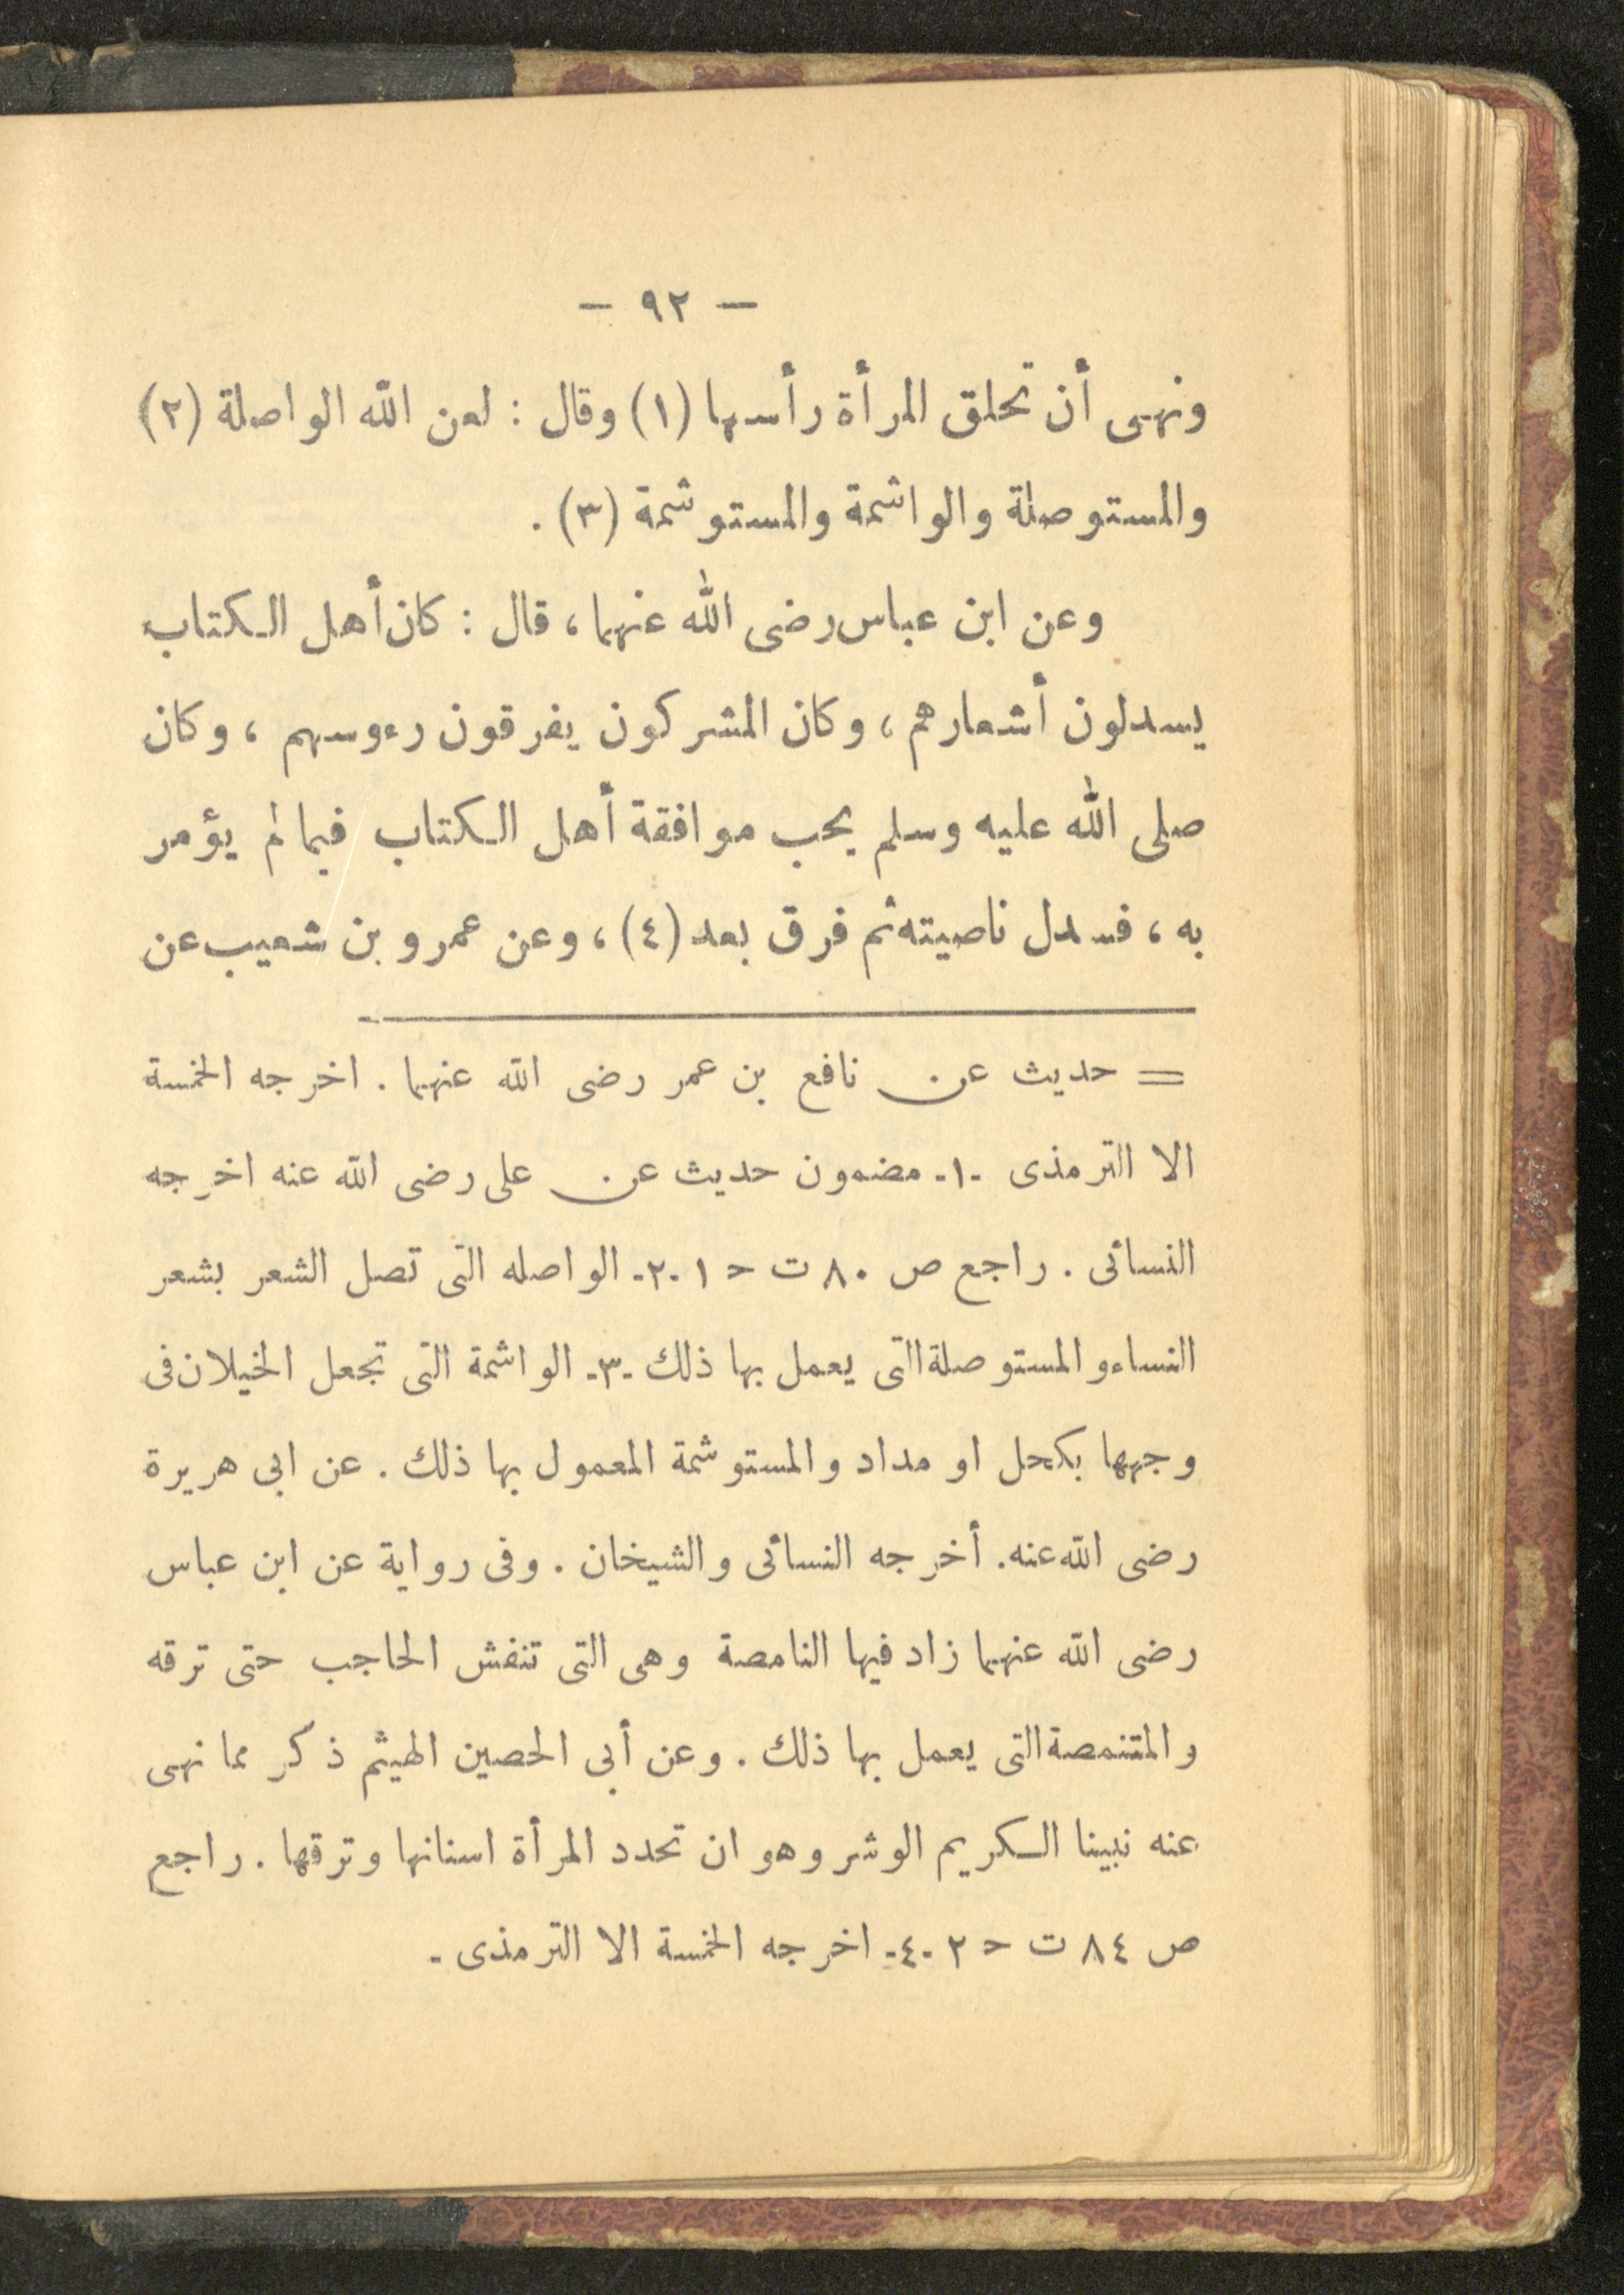 — ٩٢ —
ونهى أن تحلق المرأة رأسها (١) وقال : لعن الله الواصلة (٢)
والمستوصلة والواشمة والمستوشمة (٣) .
وعن ابن عباس رضى الله عنهما ، قال : كان أهل الكتاب
يسدلون أشعارهم ، وكان المشركون يفرقون رءوسهم ، وكان
صلى الله عليه وسلم يحب موافقة أهل الكتاب فيما لم يؤمر
به ، فسدل ناصيته ثم فرق بعد (٤) ، وعن عمرو بن شعيب عن
= حديث عن نافع بن عمر رضى الله عنهما . اخرجه الخمسة
الا الترمذى -١- مضمون حديث عن على رضى الله عنه اخرجه
النسائى . راجع ص ٨٠ ت ح ١ -٢- الواصله التى تصل الشعر بشعر
النساء والمستوصلة التى يعمل بها ذلك -٣- الواشمة التى تجعل الخيلان فى
وجهها بكحل او مداد والمستوشمة المعمول بها ذلك . عن ابى هريرة
رضى الله عنه . أخرجه النسائى والشيخان . وفى رواية عن ابن عباس
رضى الله عنهما زاد فيها النامصة وهى التى تنفش الحاجب حتى ترقه
والمتنمصة التى يعمل بها ذلك . وعن أبى الحصين الهيثم ذكر مما نهى
عنه نبينا الكريم الوشر وهو ان تحدد المرأة اسنانها وترقها . راجع
ص ٨٤ ت ح ٢ -٤- اخرجه الخمسة الا الترمذى -